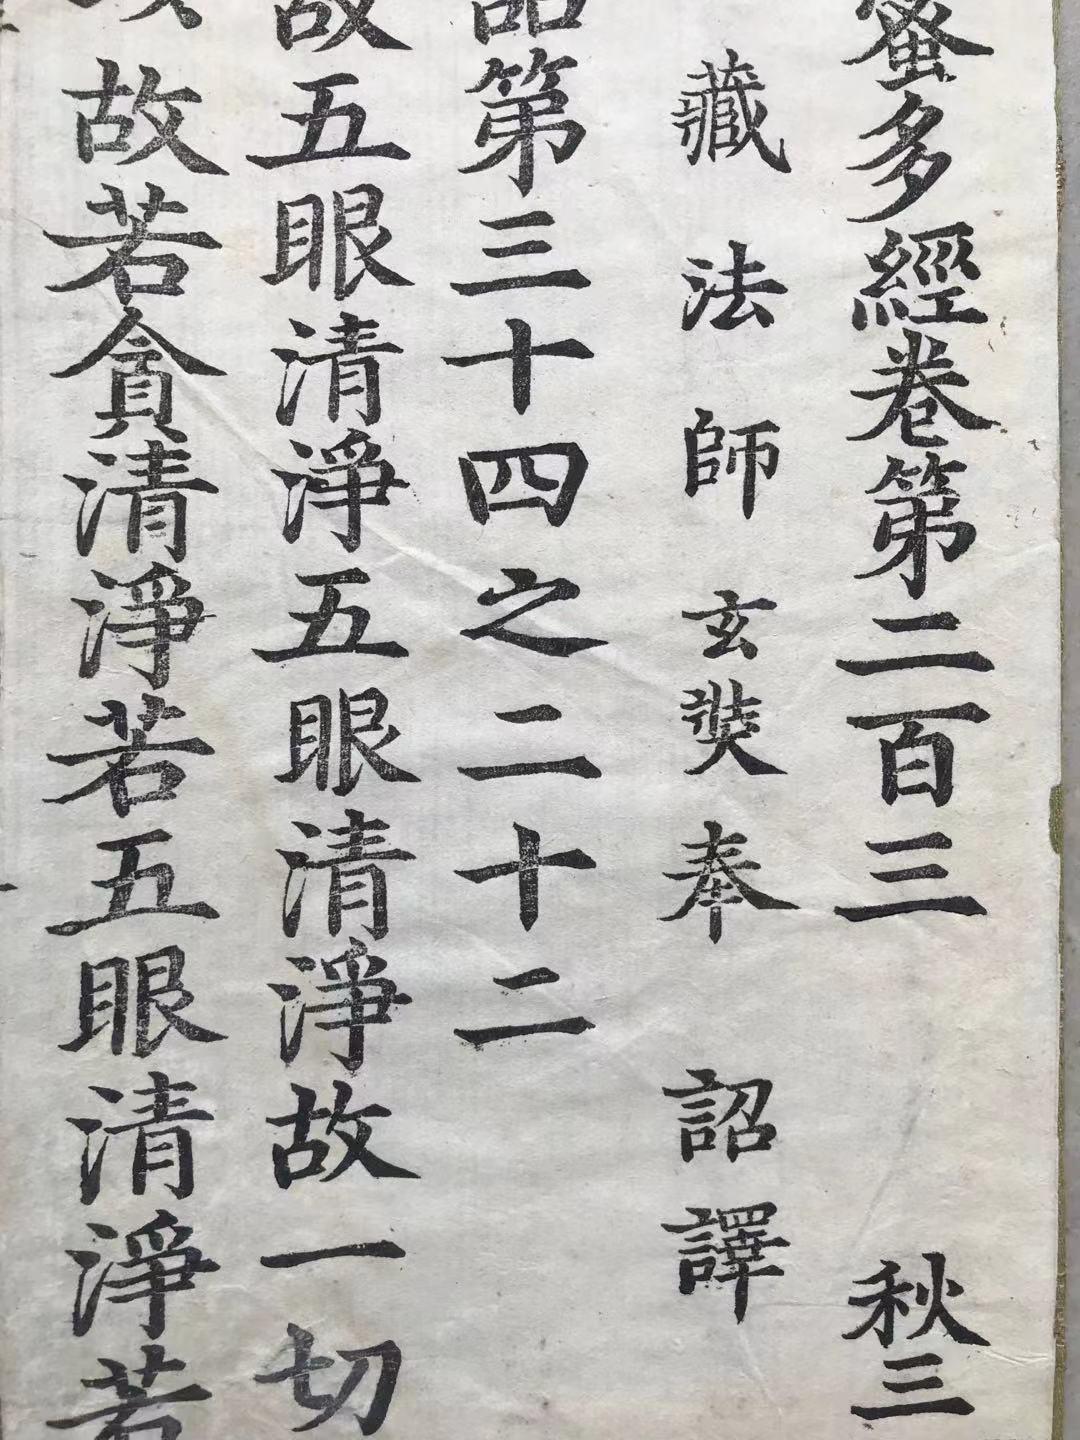 蜜多經卷第二百三 秋三
藏法師玄奘奉 詔譯
品第三十四之二十二
故五眼清淨五眼清淨故一切
故若貪清淨若五眼清淨若